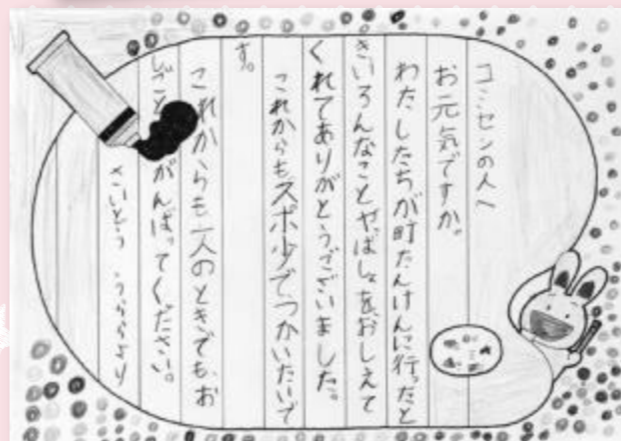 コミセンの人へ
お元気ですか。
わたしたちが町たんけんに行ったと
きいろんなことやばしょをおしえて
くれてありがとうございました。
これからもスポ少でつかいたいで
す。
これからも一人のときでも、お
しごとがんばってください。
さいとう うららより